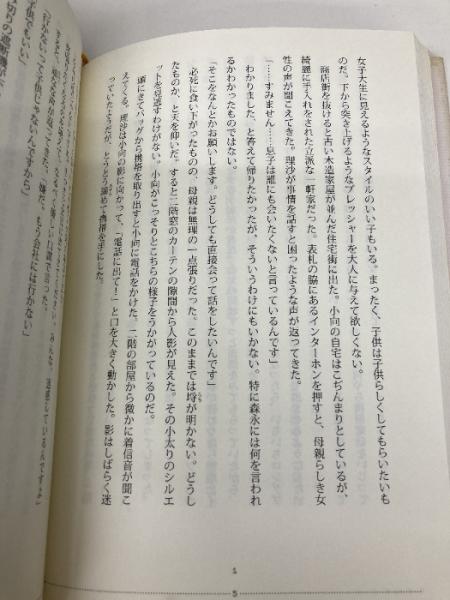 女子大生に見えるようなスタイルのいい子もいる。まったく、子供は子供らしくしてもらいたいも
のだ。下から突き上げるようなプレッシャーを大人に与えて欲しくない。
商店街を抜けると古い木造家屋が並んだ住宅街に出た。小向の自宅はこぢんまりとしているが、
綺麗に手入れをされた立派な一軒家だった。表札の脇にあるインターホンを押すと、母親らしき女
性の声が聞こえてきた。理沙が事情を話すと困ったような声が返ってきた。
「……すみません……息子は誰にも会いたくないと言っているんです」
わかりました、と答えて帰りたかったが、そういうわけにもいかない。特に森永には何を言われ
るかわかったものではない。
「そこをなんとかお願いします。どうしても直接会って話をしたいんです」
必死に食い下がったものの、母親は無理の一点張りだった。このままでは埒が明かない。どうし
たものか、と天を仰いだ。すると二階窓のカーテンの隙間から人影が見えた。その小太りのシルエ
ットを見逃すわけがない。小向がこっそりとこちらの様子をうかがっているのだ。
頭にきてバッグから携帯を取り出すと小向に電話をかけた。二階の部屋から微かに着信音が聞こ
えてくる。理沙は小向の影に向かって、「電話に出て！」と口を大きく動かした。影はしばらく迷
っていたようだが、とうとう諦めて携帯を手にした。
「嫌だ、もう会社には行かない」
子供じゃないんですから」